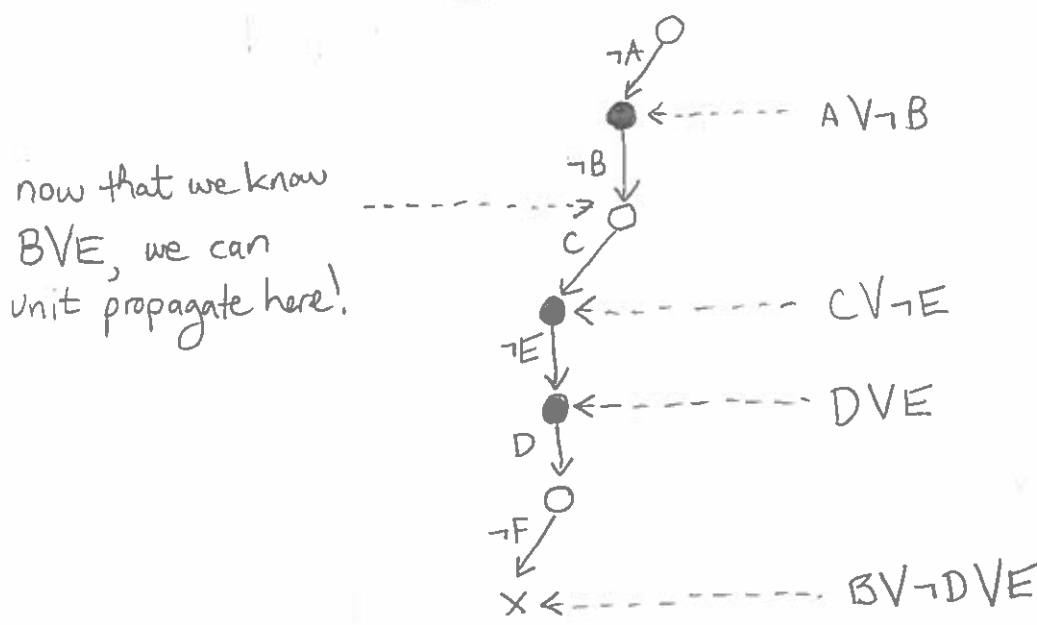 ¬A
A V ¬B
¬B
now that we know
BVE, we can
unit propagate here!
C
C V ¬E
¬E
D V E
D
¬F
X
B V ¬D V E